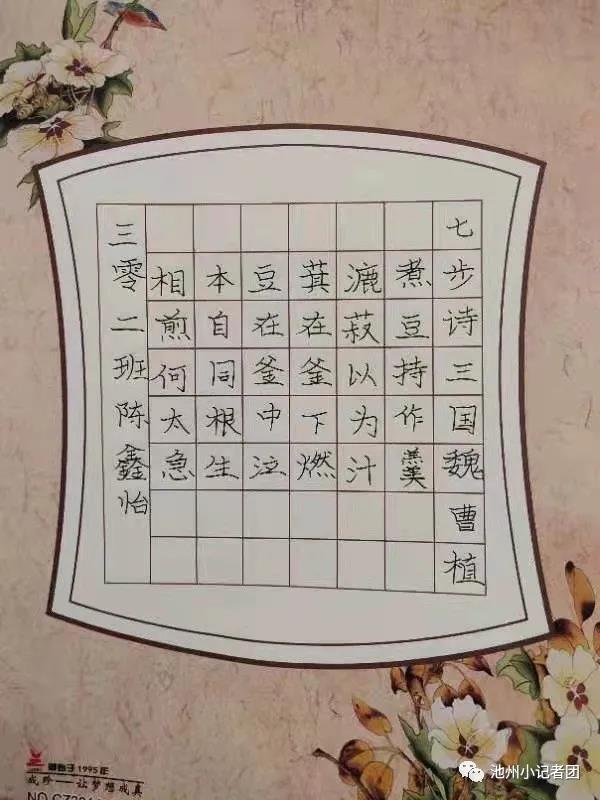 七步诗三国魏曹植
煮豆持作羹
漉菽以为汁
萁在釜下燃
豆在釜中泣
本自同根生
相煎何太急
三零二班陈鑫怡
1995年
成珍——让梦想成真
池州小记者团